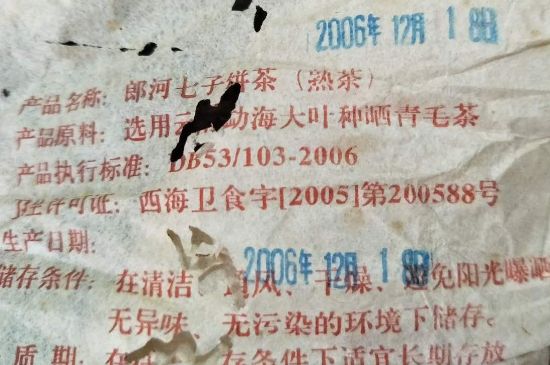 2006年 12月 18日
产品名称: 郎河七子饼茶(熟茶)
产品原料: 选用云 勐海大叶种晒青毛茶
产品执行标准: DB53/103-2006
卫生许可证: 西海卫食字[2005]第200588号
生产日期: 2006年 12月 18日
储存条件: 在清洁、 风、干燥、避免阳光曝晒
无异味、无污染的环境下储存。
质 期: 在 存条件下适宜长期存放